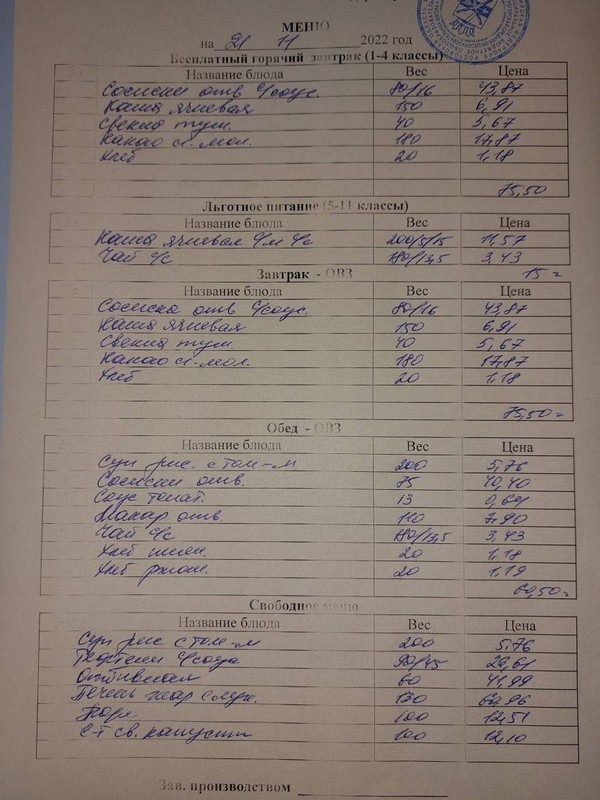 МЕНЮ
на 21 11 2022 год
Бесплатный горячий завтрак (1-4 классы)
Название блюда Вес Цена
Сосиски отв с/соус. 80/16 43,87
Каша ячневая 150 6,91
Свекла туш. 40 5,67
Какао сл-мол. 180 17,87
Хлеб 20 1,18
75,50
Льготное питание (5-11 классы)
Название блюда Вес Цена
Каша ячневая с/м с/с 200/5/15 11,57
Чай с/с 180/13,5 3,43
15=
Завтрак - ОВЗ
Название блюда Вес Цена
Сосиска отв с/соус. 80/16 43,87
Каша ячневая 150 6,91
Свекла туш. 40 5,67
Какао сл-мол. 180 17,87
Хлеб 20 1,18
75,50=
Обед - ОВЗ
Название блюда Вес Цена
Суп рис. с том-м 200 5,76
Сосиски отв. 75 40,40
Соус томат. 13 0,64
Макар отв. 110 7,90
Чай с/с 180/13,5 3,43
Хлеб пшен. 20 1,18
Хлеб ржан. 20 1,19
60,50=
Свободное меню
Название блюда Вес Цена
Суп рис с том-м 200 5,76
Тефтели с/соус 90/45 26,61
60 41,99
Печень жар 62,96
100 12,51
С-т св. капусты 100 12,10
Зав. производством